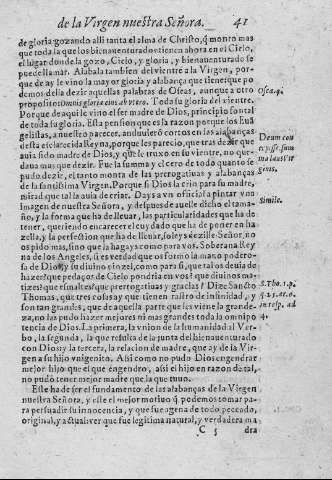 de la Virgen nuestra Señora. 41
de gloria gozando alli tanta el alma de Christo, q̃ monto mas
que toda la que los bienauenturados tienen ahora en el Cielo,
el lugar donde la gozo, Cielo, y gloria, y bienauenturado se
puede llamar. Alabala tambien del vientre a la Virgen, por-
que de ay le vino la mayor gloria y alabança que tiene: que po
demos dezia dezir aquellas palabras de Oseas, aunque a otro
proposito: Omnis gloria eius ab vtero. Toda su gloria del vientre.
Porque de aqui le vino el ser madre de Dios, principio fontal
de toda su gloria. Esta pienso que es la razon porque los Eua
gelistas, a nuestro parecer, anduuierõ cortos en las alabanças
desta esclarecida Reyna, porque les parecio, que tras dezir que
auia sido madre de Dios, y que le truxo en su vientre, no que-
daua mas que dezir. Fue la summa y el cero de todo quanto se
pudo dezir, el tanto monta de las prerogatiuas y alabanças
de la santissima Virgen. Porque si Dios la crio para su madre,
mirad que tal la auia de criar. Days a vn oficial a pintar vna
Imagen de nuestra Señora, y despues de auelle dicho el tama-
ño, y la forma que ha de lleuar, las particularidades que ha de
tener, queriendo encarecer el cuydado que ha de poner en ha-
zella, y la perfection que ha de lleuar, soleys dezille Señor, no
os pido mas, sino que la hagays como para vos. Soberana Rey
na de los Angeles, si es verdad que os formo la mano podero-
sa de Dios, y su diuino cinzel, como para si, que tal os deuia de
hazer? que pedaços de Cielo pondria en vos? que diuinos ma-
tizes? que esmaltes? que prerrogatiuas y gracias? Dize Sancto
Thomas, que tres cosas ay que tienen rastro de infinidad, y
son tan grandes, que de aquella parte que les viene la grande-
za, no las pudo hazer mejores ni mas grandes toda la omnipo
tencia de Dios. La primera, la vnion de la humanidad al Ver-
bo, la segunda, la que resulta de la junta del bienauenturado
con Dios: y la tercera, la relacion de madre, que ay de la Vir-
gen a su hijo vnigenito. Assi como no pudo Dios engendrar
mejor hijo que el que engendro, assi el hijo en razon de tal,
no pudo tener mejor madre que la que tuuo.
Este ha de ser el fundamento de las alabanças de la Virgen
nuestra Señora, y este el mejor motiuo q̃ podemos tomar pa-
ra persuadir su innocencia, y que fue agena de todo peccado,
original, y actual: ver que fue legitima natural, y verdadera ma
C 5 dra
Osea. 9.
Simile.
S. Tho. 1. p.